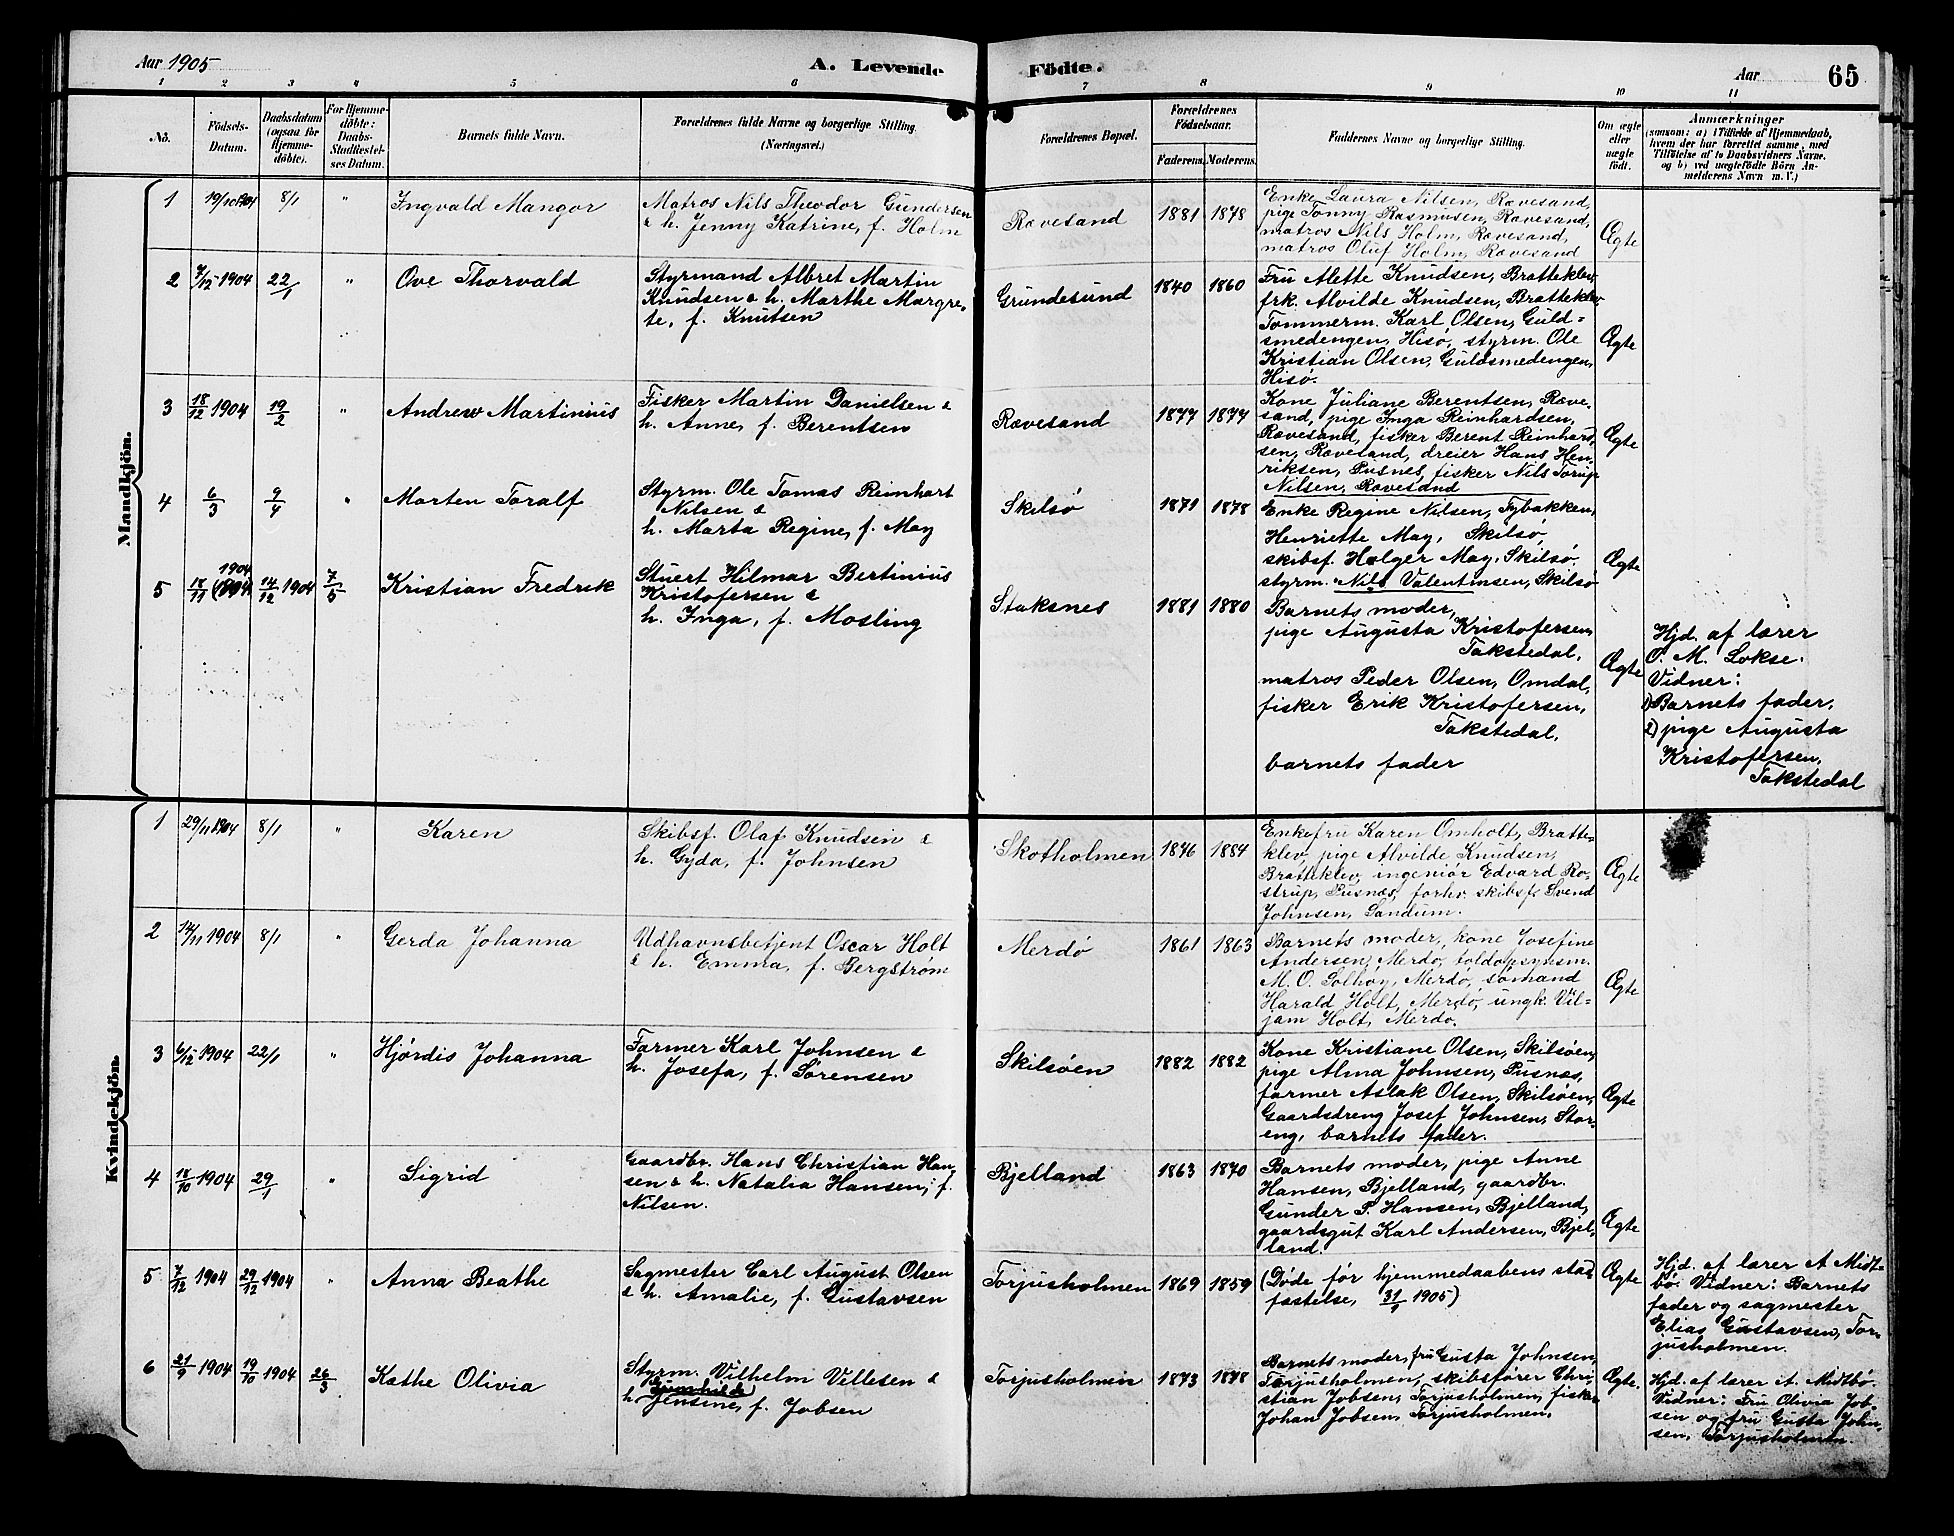 Aar 1905
A. Levende Födte.
Aar
65
1 2 3 4 5 6 7 8 9 10 11
No.
Födsels-
Datum.
Daabsdatum
(ogsaa for
Hjemme-
döbte).
For Hjemme-
döbte:
Daabs-
Stadfæstel-
ses Datum.
Barnets fulde Navn.
Forældrenes fulde Navne og borgerlige Stilling.
(Næringsvei.)
Forældrenes Bopæl.
Forældrenes
Födselsaar.
Faderens. Moderens.
Faddernes Navne og borgerlige Stilling.
Om ægte
eller
uægte
födt.
Anmærkninger
(saasom: a) i Tilfælde af Hjemmedaab,
hvem der har forrettet samme, med
Tilföielse af to Daabsvidners Navne,
og b) ved uægtefödte Börn An-
melderens Navn m. V.)
Mandkjön.
1 19/10 1904 8/1 " Ingvald Mangor
Matros Nils Theodor Gundersen
& h. Jenny Katrine, f. Holm
Rævesand 1881 1878
Enke Laura Nilsen, Rævesand,
pige Tonny Rasmusen, Rævesand,
matros Nils Holm, Rævesand,
matros Oluf Holm, Rævesand
Ægte
2 7/12 1904 22/1 " Ove Thorvald
Styrmand Albret Martin
Knudsen & h. Marthe Margre-
te, f. Knutsen
Grundesund 1840 1860
Fru Alette Knudsen, Bratteklev,
frk. Alvilde Knudsen, Bratteklev
Tømmerm. Karl Olsen, Guld-
smedengen, Hisø, styrm. Ole
Kristian Olsen, Guldsmedengen,
Hisø.
Ægte
3 18/12 1904 19/2 " Andrew Martinius
Fisker Martin Danielsen &
h. Anne, f. Berentsen
Rævesand 1877 1877
Kone Juliane Berentsen, Ræve-
sand, pige Inga Reinhardsen,
Rævesand, fisker Berent Reinhard-
sen, Rævesand, dreier Hans Hen-
riksen, Pusnes, fisker Nils Torup
Nilsen, Rævesand
Ægte
4 6/3 9/4 " Morten Toralf
Styrm. Ole Tomas Reinhart
Nilsen &
h. Marta Regine, f. May
Skilsø 1871 1878
Enke Regine Nilsen, Tybakken,
Henriette May, Skilsø,
skibsf. Holger May, Skilsø.
styrm. Nils Valentinsen, Skilsø
Ægte
5 18/11 1904 14/12 1904 7/5 Kristian Fredrik
Stuert Hilmar Bertinius
Kristofersen &
h. Inga, f. Mosling
Staksnes 1881 1880
Barnets moder,
pige Augusta Kristofersen,
Takstedal,
matros Peder Olsen, Omdal,
fisker Erik Kristofersen,
Takstedal,
barnets fader
Ægte
Hjd. af lærer
O. M. Løkse.
Vidner:
1) Barnets fader,
2) pige Augusta
Kristofersen,
Takstedal
Kvindekjön.
1 29/11 1904 8/1 " Karen
Skibsf. Olaf Knudsen &
h. Gyda, f. Johnsen
Skotholmen 1876 1884
Enkefru Karen Omholt, Bratte-
klev, pige Alvilde Knudsen,
Bratteklev, ingeniør Edvard Ro-
strup, Pusnæs, forhv. skibsf. Svend
Johnsen, Sandum.
Ægte
2 14/11 1904 8/1 " Gerda Johanna
Udhavnsbetjent Oscar Holt
& h. Emma, f. Bergstrøm
Merdø 1861 1863
Barnets moder, kone Josefine
Andersen, Merdø, toldopsynsm.
M. O. Solhøy, Merdø, sømand
Harald Holt, Merdø, ungk. Vil-
jam Holt, Merdø.
Ægte
3 6/12 1904 22/1 " Hjørdis Johanna
Farmer Karl Johnsen &
h. Josefa, f. Sørensen
Skilsøen 1882 1882
Kone Kristiane Olsen, Skilsøen,
pige Alma Johnsen, Pusnæs,
farmer Aslak Olsen, Skilsøen,
Gaardsdreng Josef Johnsen, Stor-
eng, barnets fader.
Ægte
4 18/10 1904 29/1 " Sigrid
Gaardbr. Hans Christian Han-
sen & h. Natalia Hansen, f.
Nilsen.
Bjelland 1863 1870
Barnets moder, pige Anne
Hansen, Bjelland, gaardbr.
Gunder P. Hansen, Bjelland,
gaardsgut Karl Andersen, Bjel-
land.
Ægte
5 7/12 1904 29/12 1904 " Anna Beathe
Sagmester Carl August Olsen
& h. Amalie, f. Gustavsen
Torjusholmen 1869 1859
(Døde før hjemmedaabens stad-
fæstelse, 31/1 1905)
Ægte
Hjd. af lærer A. Midt-
bø. Vidner: Barnets
fader og sagmester
Elias Gustavsen, Tor-
jusholmen.
6 21/9 1904 19/10 1904 26/3 Kathe Olivia
Styrm. Vilhelm Villesen &
h. Jensine, f. Jobsen
Torjusholmen 1873 1878
Barnets moder, fru Gusta Johnsen,
Torjusholmen, skibsfører Chri-
stian Jobsen, Torjusholmen, fisker
Johan Jobsen, Torjusholmen.
Ægte.
Hjd. af lærer A. Midtbø.
Vidner: Fru Olivia Job-
sen og fru Gusta John-
sen, Torjusholmen.